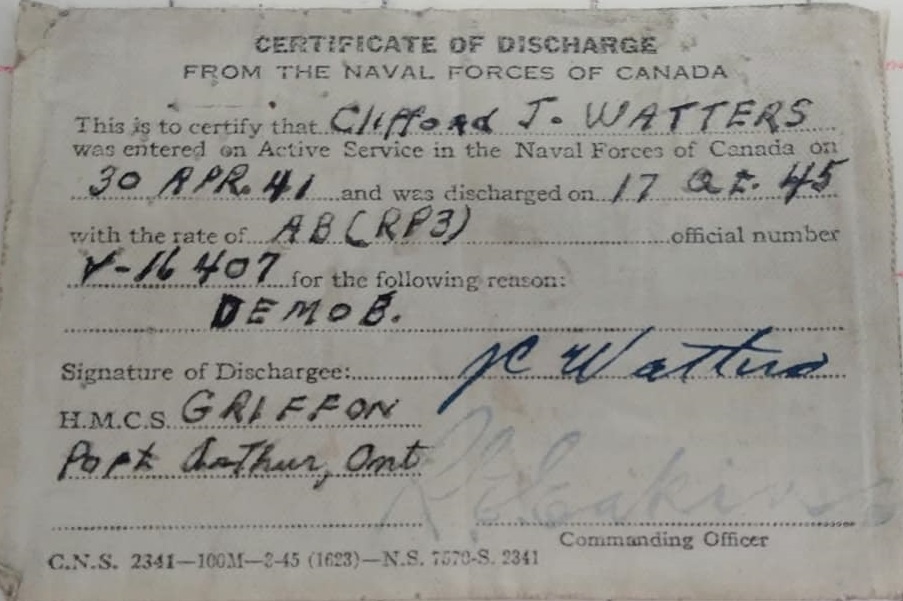 CERTIFICATE OF DISCHARGE
FROM THE NAVAL FORCES OF CANADA
This is to certify that Clifford J. WATTERS
was entered on Active Service in the Naval Forces of Canada on
30 APR. 41 and was discharged on 17 OCT. 45
with the rate of AB (RP3) official number
V-16407 for the following reason:
DEMOB.
Signature of Dischargee: JC Watters
H.M.C.S. GRIFFON
Port Arthur, Ont
Commanding Officer
C.N.S. 2341—100M—3-45 (1623)—N.S. 7570-S. 2341